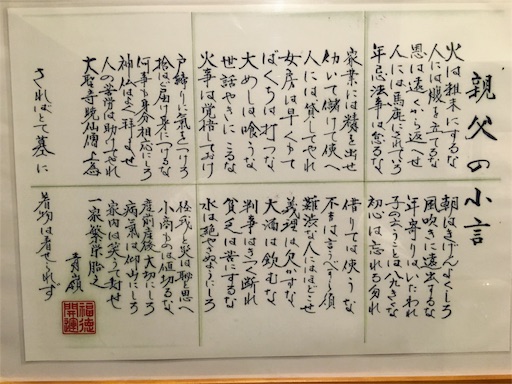 親父の小言
火は粗末にするな
人には腹を立てるな
恩は遠くから返せ
人には馬鹿にされていろ
年忌法事は怠るな
家業には精を出せ
働いて儲けて使へ
人には貸してやれ
女房は早くもて
ばくちは打つな
大めしは喰うな
世話やきになるな
火事は覚悟しておけ
戸締りに気をつけろ
拾はば届け身につけるな
何事も身分相応にしろ
神仏はよく拝ませ
人の苦労は助けてやれ
大聖寺暁仙僧上
されはとて墓に
朝はきげんよくしろ
風吹きに遠出するな
年寄りはいたわれ
子の云うことは八九きくな
初心は忘れる勿れ
借りては使うな
不吉は言うべからず
難渋な人にはほどこせ
義理は欠かすな
大酒は飲むな
判事はきつく断れ
貧乏は苦にするな
水は絶やさぬようにしろ
怪我と災は恥と思へ
小商ものは値切るな
産前産後大切にしろ
病気は仰山にしろ
家内は笑ふて暮せ
一家繁栄
着物は着せられず
福徳開運